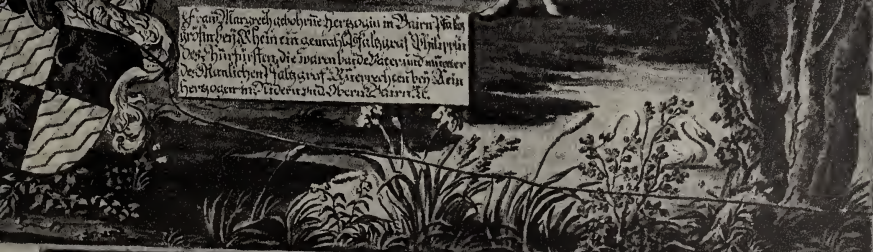 Fraw Margreth gebohrne Hertzogin in Bairn Pfalz
gröffin beÿ Rhein ein gemahl Pfaltzgraf Philipsen
des Churfürsten, die waren baide Vater und mutter
des Manlichen Pfaltzgraf Rueprechten beÿ Rein
hertzogen in Nidern und Obern Bairn ꝛc.